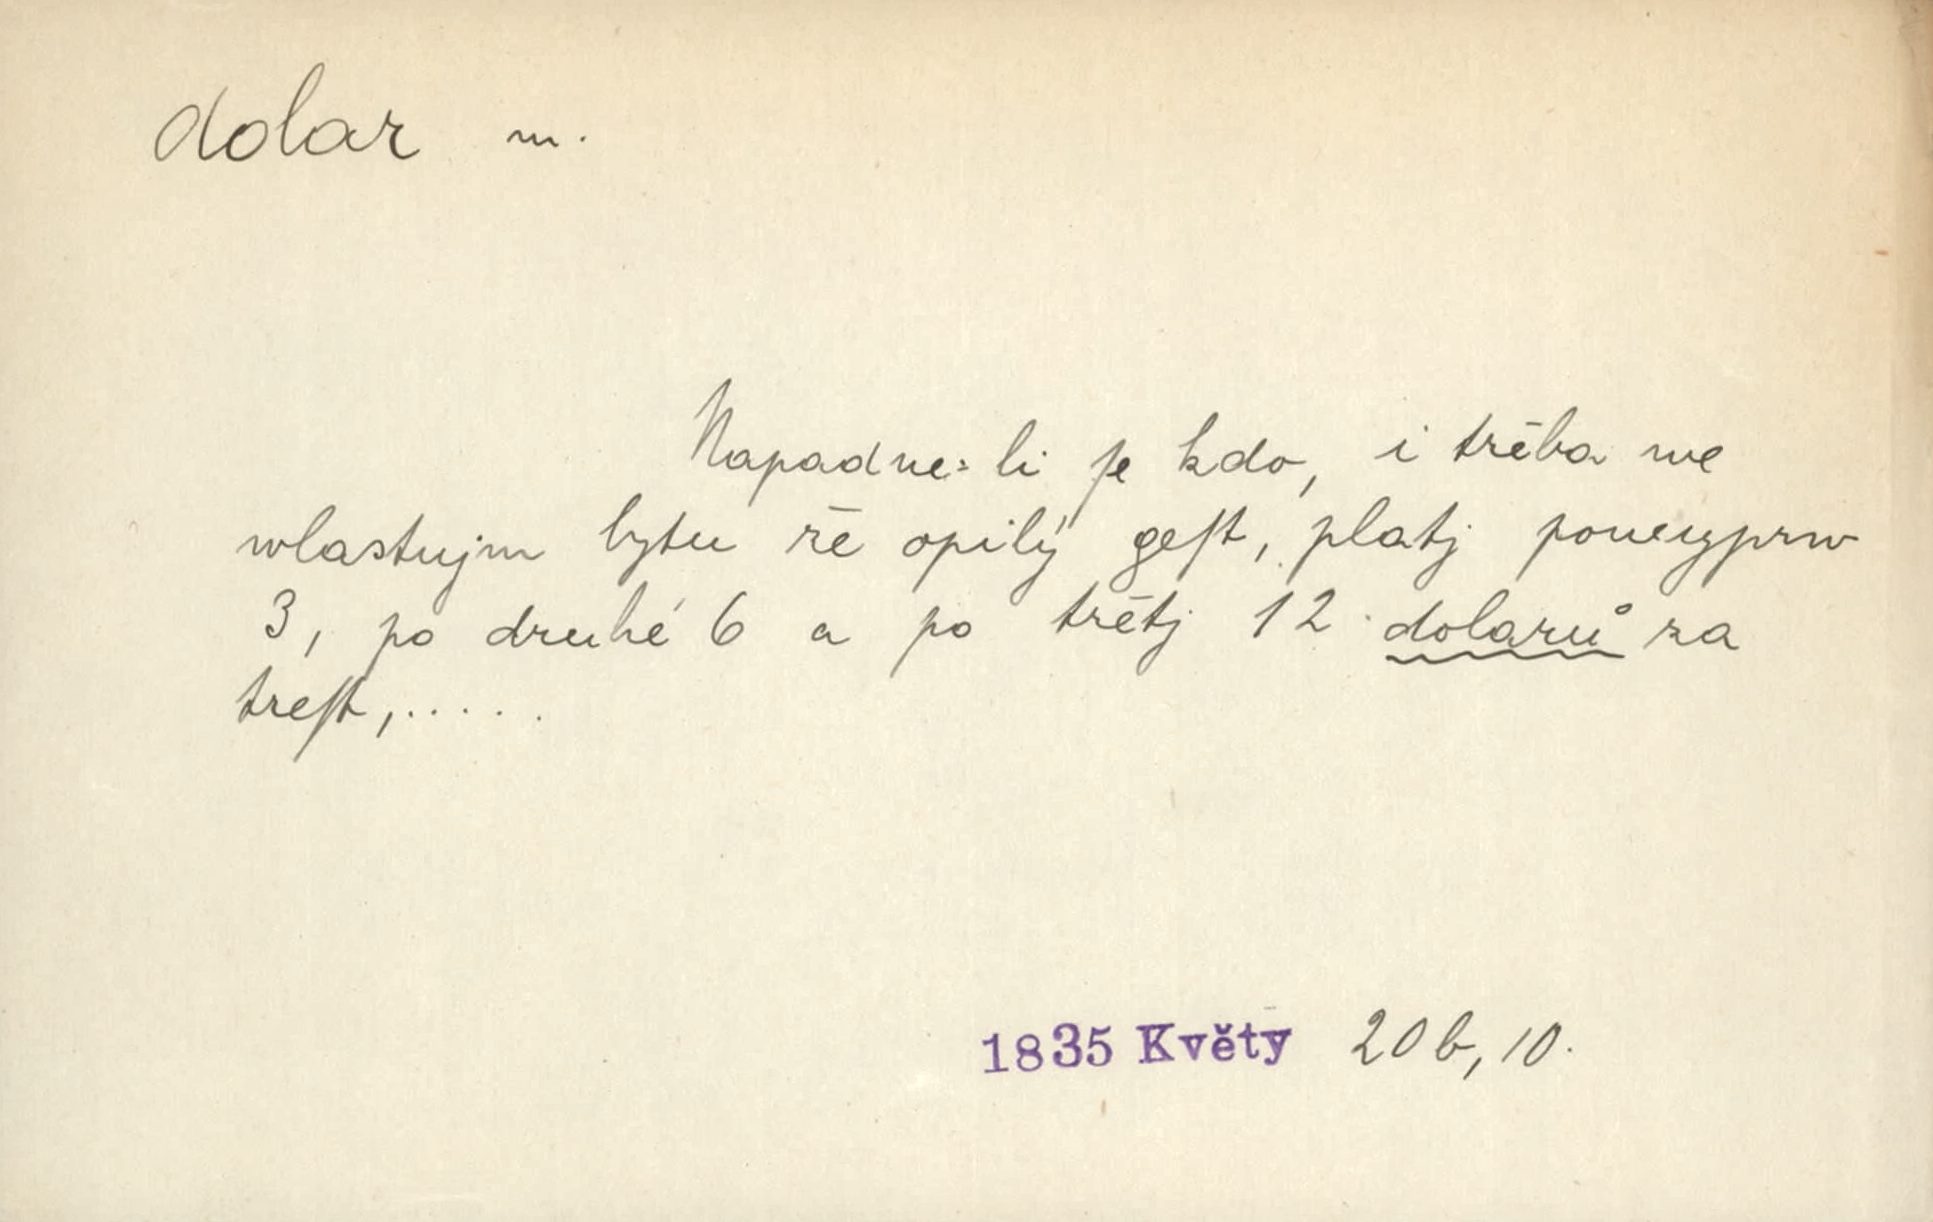 dolar m.
Napadne-li ſe kdo, i třeba we
wlastnjm bytu že opilý geſt, platj poneyprw
3, po druhé 6 a po třetj 12 dolarů za
treſt,.....
1835 Květy 20b, 10.